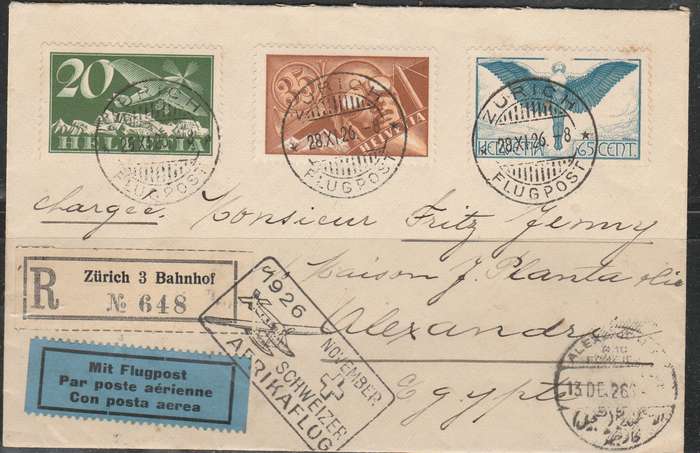 20
HELVETIA
35
HELVETIA
HELVETIA 65 CENT.
ZÜRICH
28 XI 26. -8
FLUGPOST
ZÜRICH
28 XI 26. -8
FLUGPOST
ZÜRICH
28 XI 26. -8
FLUGPOST
Chargée. Monsieur Fritz Jenny
Maison J. Planta & Cie
Alexandrie
Egypte
R
Zürich 3 Bahnhof
№ 648
Mit Flugpost
Par poste aérienne
Con posta aerea
1926
NOVEMBER
SCHWEIZER
AFRIKAFLUG
13 DE. 26